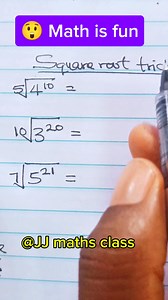 😲 Math is fun
Square root tric
⁵√4¹⁰ =
¹⁰√3²⁰ =
⁷√5²¹ =
@JJ maths class